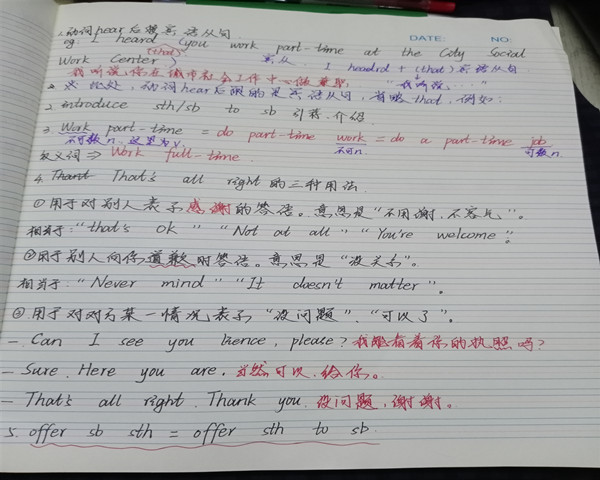 DATE: NO:
1.动词hear后接宾语从句.
eg: I heard (you work part-time at the City Social
Work Center) (that) 宾从. I heard + (that) 宾语从句.
我听说,你在城市社会工作中心做兼职. "我听说,……"
此处,动词hear后跟的是宾语从句,省略that,例如:
2. introduce sth/sb to sb 引荐.介绍.
3. Work part-time = do part-time work = do a part-time job
不可数n. 这里为v. 不可n. 可数n.
反义词⇒ Work full-time.
4. That's all right 的三种用法.
①用于对别人表示感谢的答语。意思是"不用谢.不客气"。
相当于:"that's ok" "Not at all" "You're welcome"。
②用于别人向你道歉时答语。意思是"没关系"。
相当于:"Never mind" "It doesn't matter"。
③用于对对方某一情况表示"没问题"."可以了"。
— Can I see you lience, please? 我能看看你的执照吗?
— Sure. Here you are. 当然可以.给你。
— That's all right. Thank you. 没问题,谢谢。
5. offer sb sth = offer sth to sb.